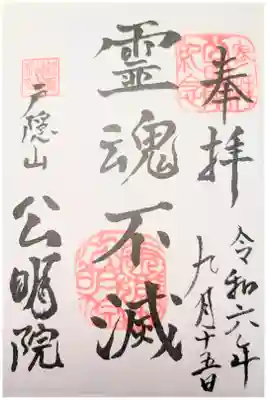 奉拝
令和六年
九月十五日
霊魂不滅
戸隠山
公明院